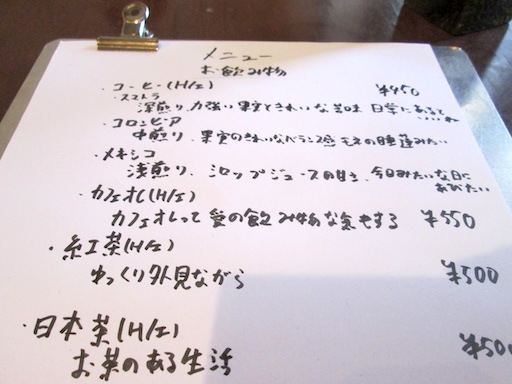 メニュー
お飲み物
・コーヒー(H/I) ¥450
・スマトラ
深煎り、力強い果実ときれいな苦味 日常にあると
・コロンビア
中煎り、果実のきれいなバランス感 モネの睡蓮みたい
・メキシコ
浅煎り、シロップジュースの甘さ、今日みたいな日に
あびたい
・カフェオレ(H/I)
カフェオレって愛の飲み物な気もする ¥550
・紅茶(H/I)
ゆっくり外見ながら ¥500
・日本茶(H/I) ¥500
お茶のある生活